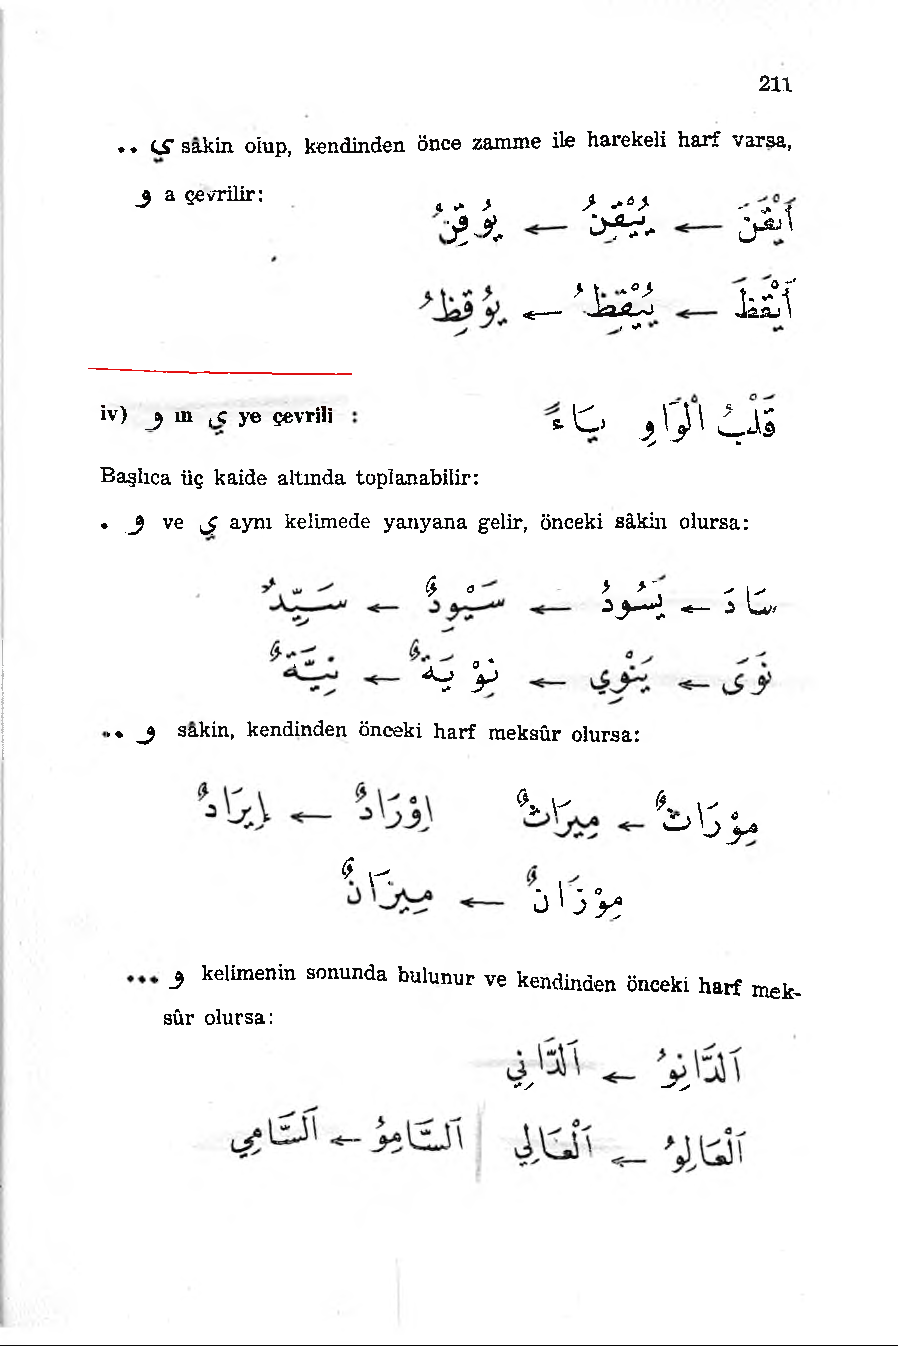 211
.. ي sâkin olup, kendinden önce zamme ile harekeli harf varsa,
و a çevrilir:
أَيْقَنَ ← يُيْقِنُ ← يُوقِنُ
أَيْقَظَ ← يُيْقِظُ ← يُوقِظُ
iv) و ın ي ye çevrili : قَلْبُ الْوَاوِ يَاءً
Başlıca üç kaide altında toplanabilir:
. و ve ي aynı kelimede yanyana gelir, önceki sâkin olursa:
سَادَ ← يَسُودُ ← سَيْوِدٌ ← سَيِّدٌ
نَوَى ← يَنْوِي ← نِوْيَةٌ ← نِيَّةٌ
.. و sâkin, kendinden önceki harf meksûr olursa:
مِوْرَاثٌ ← مِيرَاثٌ اِوْرَادٌ ← إِيرَادٌ
مِوْزَانٌ ← مِيزَانٌ
... و kelimenin sonunda bulunur ve kendinden önceki harf mek-
sûr olursa:
اَلدَّانِوُ ← اَلدَّانِي
اَلْعَالِوُ ← اَلْعَالِي اَلسَّامِوُ ← اَلسَّامِي